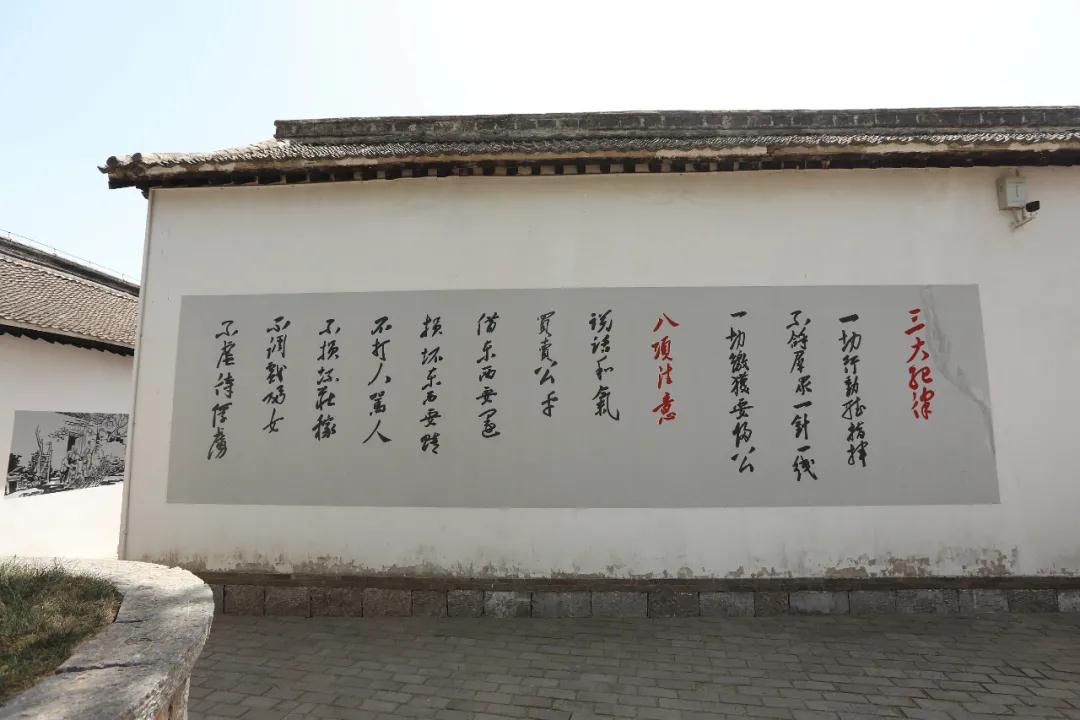 三大纪律
一切行动听指挥
不拿群众一针一线
一切缴獲要归公
八项注意
说话和氣
買賣公平
借东西要还
损坏东西要赔
不打人骂人
不损坏莊稼
不调戲妇女
不虐待俘虏